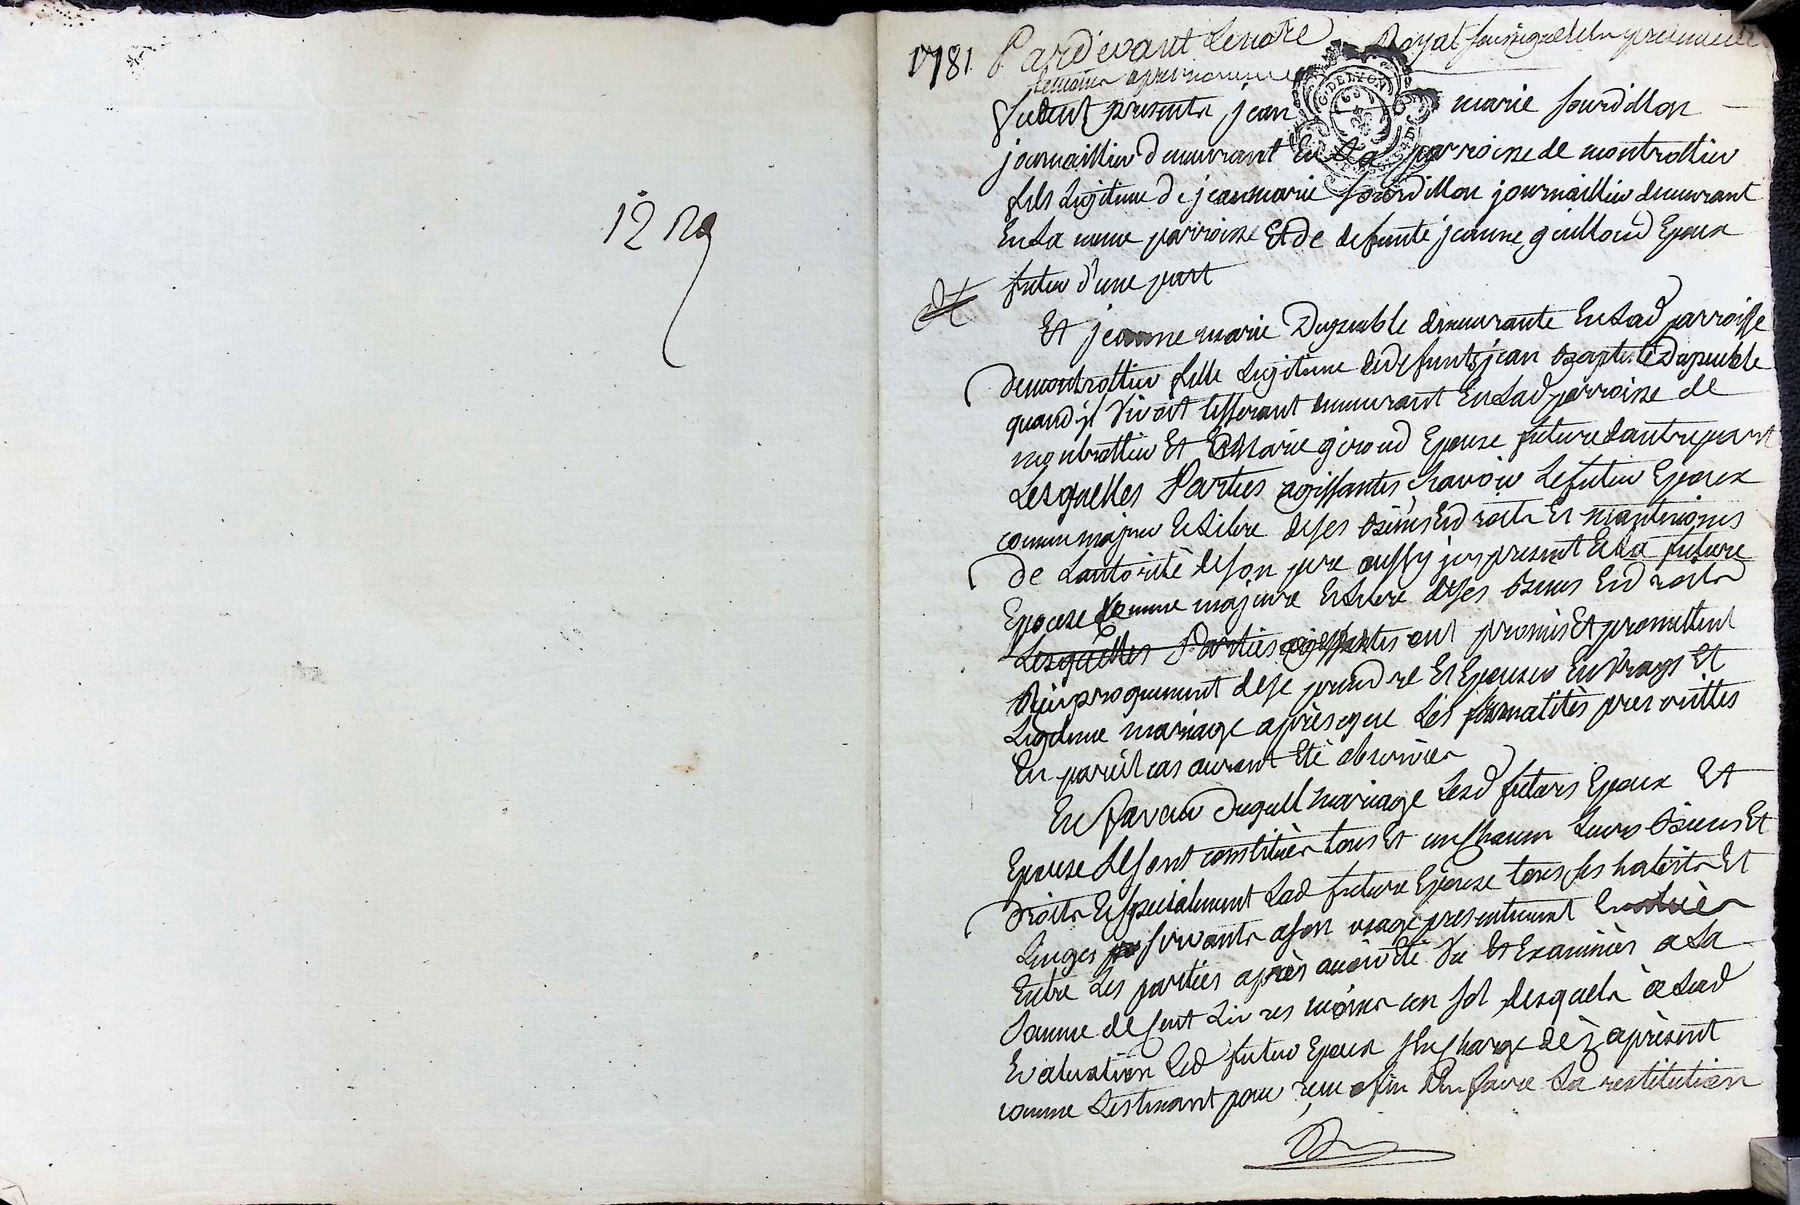 12 Ng
1781 Pardevant Le notre Royal soussigné et en presence de
temoins apres nommes
G. DE LYON
furent presents jean marie sourdillon
journaillier demeurant En La parroisse de montrottier
fils Legitime de jean marie sourdillon journaillier demeurant
En La meme parroisse Et de defunte jeanne guilloud Epoux
futur d'une part
Et jeanne marie Dupeuble demeurante En Lad parroisse
de montrottier fille Legitime de defunt jean Baptiste Dupeuble
quand il Vivoit tisserant demeurant En Lad parroisse de
montrottier Et Marie giroud Epouse future dautre part
Lesquelles Parties agissantes sçavoir Le futur Epoux
comme majeur Et Libre de ses Biens Et droits Et neantmoins
de Lautorité de son pere aussy icy present Et La future
Epouse comme majeure Et Libre de ses Biens Et droits
Lesquelles Parties agissantes ont promis Et promettent
Reciproquement de se prendre Et Epouser En vray Et
Legitime mariage après que Les formalités prescrittes
En pareil cas auront Eté observées
En faveur duquel mariage Lesd futurs Epoux Et
Epouse se sont constitués tous Et un chacun Leurs Biens Et
droits Et specialement Lad future Epouse tous ses habits Et
Linges servants a son usage presentement
Entre Les parties après avoir été Vu Et Examinés a La
somme de cent Livres moins un sol desquels a Lad
Evaluation Led futur Epoux s'en charge dèz aprèsent
comme Les tenant pour reçu afin d'En faire La restitution